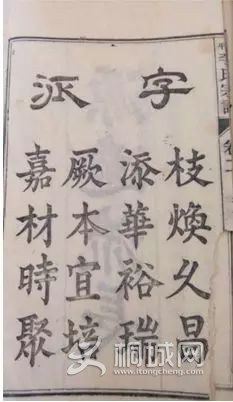 李氏宗譜
字派
枝煥久昌
添華裕瑞
厥本宜培
嘉材時聚
桐城网
www.itongcheng.com